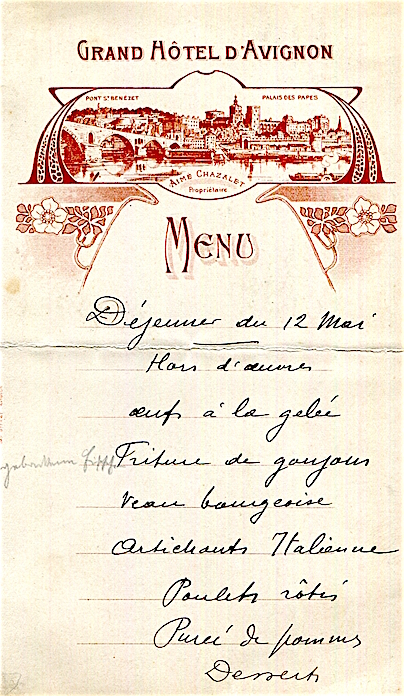 GRAND HÔTEL D'AVIGNON
PONT ST BENEZET
PALAIS DES PAPES
AIMÉ CHAZALET
Propriétaire
MENU
Déjeuner du 12 Mai
Hors d'œuvres
œufs à la gelée
Friture de goujons
Veau bourgeoise
Artichauts Italienne
Poulets rôtis
Purée de pommes
Desserts